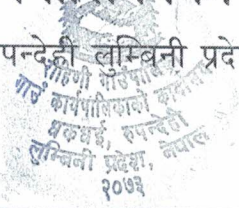 पन्देही लुम्बिनी प्रदे
रोहिणी गाउँपालिका
गाउँ कार्यपालिकाको कार्यालय
धकधई, रुपन्देही
लुम्बिनी प्रदेश, नेपाल
२०७३